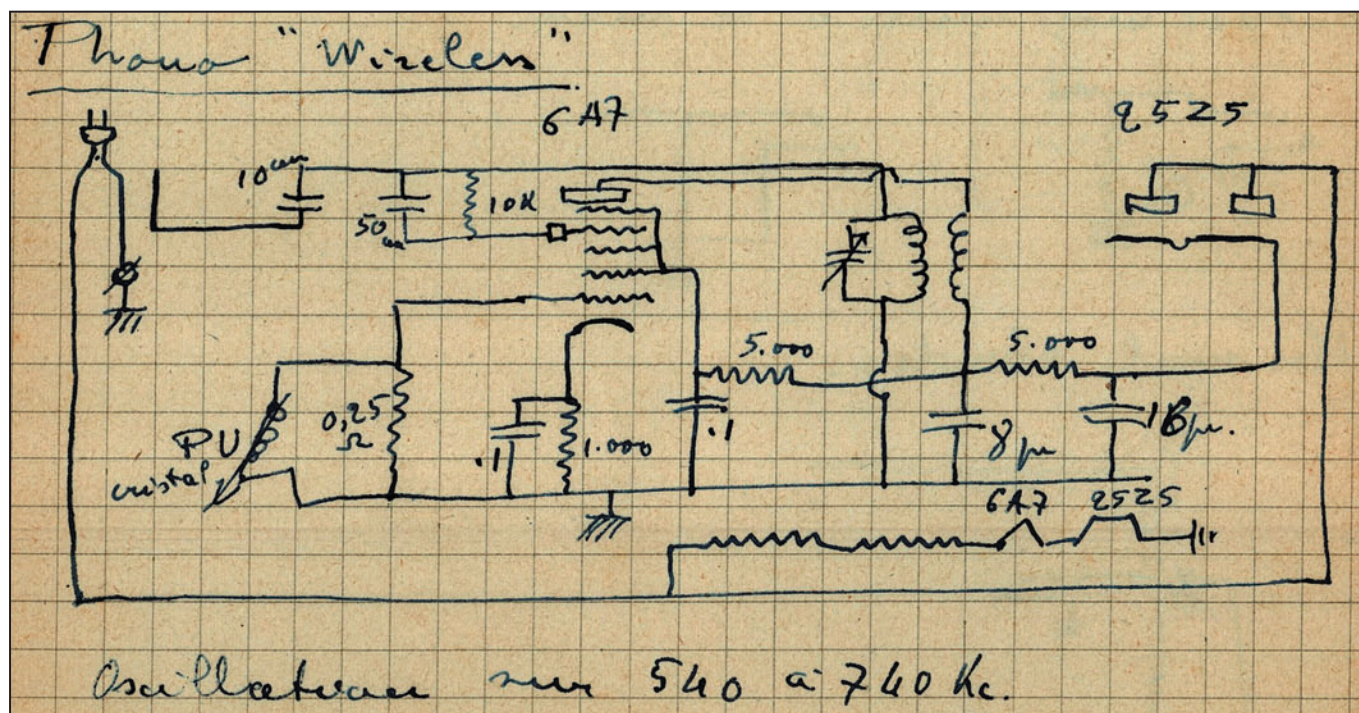 Phono "Wireless"
6A7
2525
10 cm
50 cm
10K
5.000
5.000
PU
cristal
0,25
Ω
.1
1.000
.1
8 µ
16 µ.
6A7 2525
Oscillation sur 540 à 740 Kc.